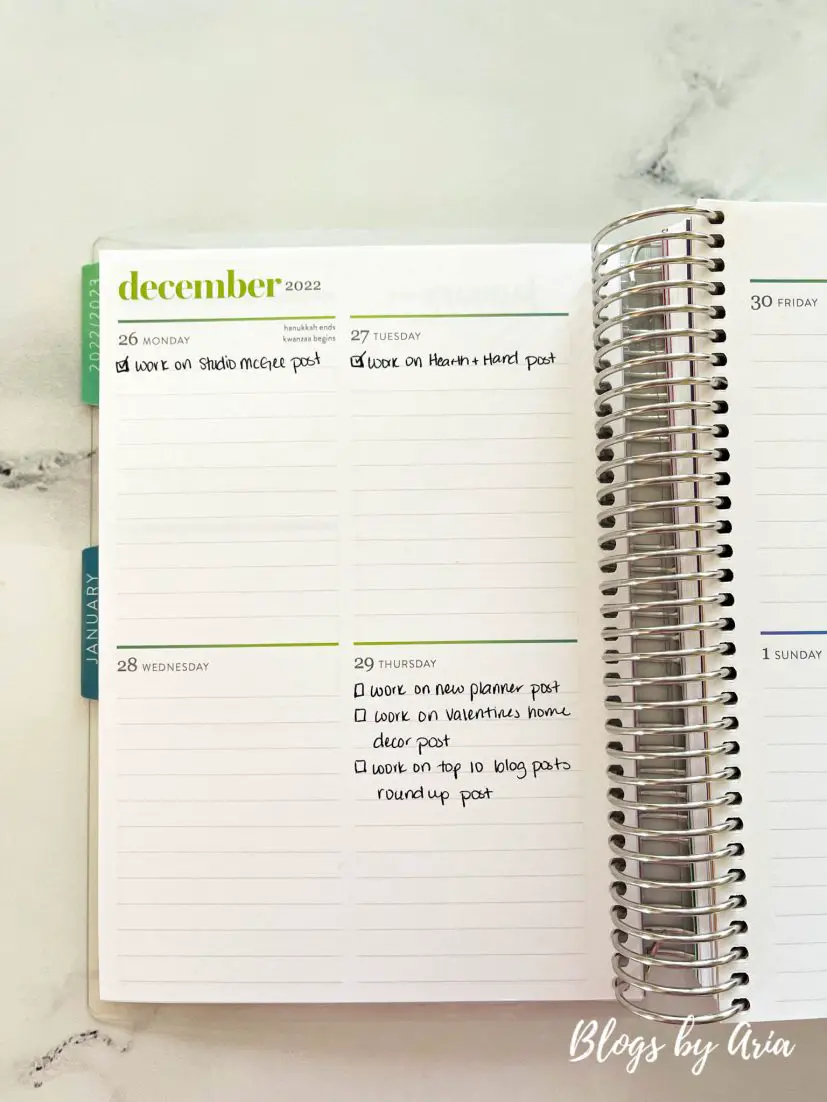 december 2022
2022/2023
26 MONDAY
hanukkah ends
kwanzaa begins
work on Studio McGee post
27 TUESDAY
work on Hearth + Hand post
JANUARY
28 WEDNESDAY
29 THURSDAY
work on new planner post
work on Valentines home
decor post
work on top 10 blog posts
round up post
30 FRIDAY
1 SUNDAY
Blogs by Aria